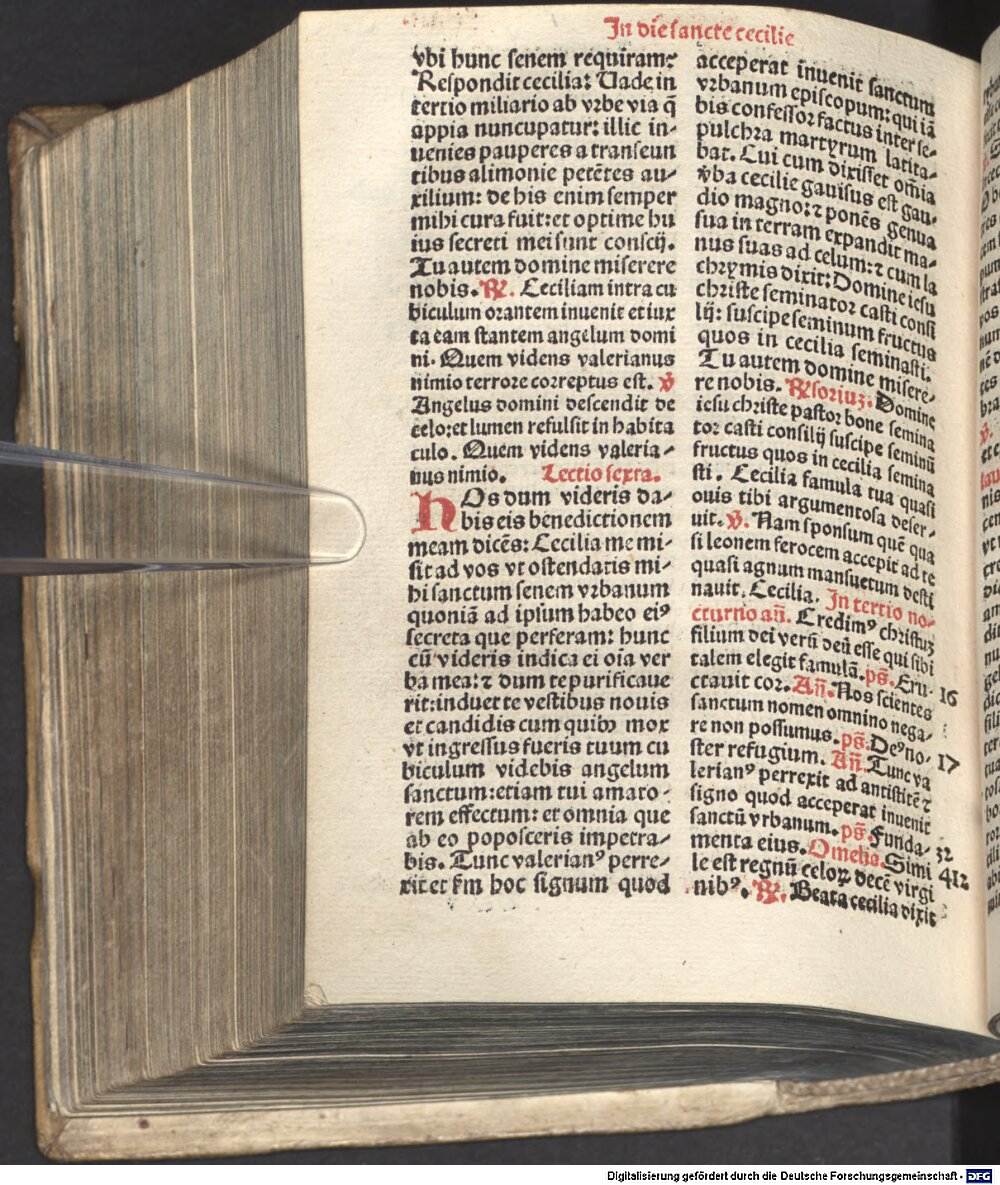 In die sancte cecilie
vbi hunc senem requiram?
Respondit cecilia: Uade in
tertio miliario ab vrbe via q̄
appia nuncupatur: illic in-
uenies pauperes a transeun
tibus alimonie petētes au-
xilium: de his enim semper
mihi cura fuit: et optime hu
ius secreti mei sunt conscij.
Tu autem domine miserere
nobis. R̷. Ceciliam intra cu
biculum orantem inuenit et iux
ta eam stantem angelum domi
ni. Quem videns valerianus
nimio terrore correptus est. V̷
Angelus domini descendit de
celo: et lumen refulsit in habita
culo. Quem videns valeria-
nus nimio. Lectio sexta.
HOs dum videris da-
bis eis benedictionem
meam dicēs: Cecilia me mi-
sit ad vos vt ostendatis mi-
hi sanctum senem vrbanum
quoniā ad ipsum habeo eiꝰ
secreta que perferam: hunc
cū videris indica ei oīa ver
ba mea: ⁊ dum te purificaue
rit: induet te vestibus nouis
et candidis cum quibꝫ mox
vt ingressus fueris tuum cu
biculum videbis angelum
sanctum: etiam tui amato-
rem effectum: et omnia que
ab eo poposceris impetra-
bis. Tunc valerianꝰ perre-
xit et fm̄ hoc signum quod
acceperat inuenit sanctum
vrbanum episcopum: qui iā
bis confessor factus inter se-
pulchra martyrum latita-
bat. Cui cum dixisset om̄ia
vba cecilie gauisus est gau-
dio magno: ⁊ ponēs genua
sua in terram expandit ma-
nus suas ad celum: ⁊ cum la
chrymis dixit: Domine iesu
christe seminator casti consi
lij: suscipe seminum fructus
quos in cecilia seminasti.
Tu autem domine misere-
re nobis. R̷soriuꝫ. Domine
iesu christe pastor bone semina
tor casti consilij suscipe seminū
fructus quos in cecilia semina
sti. Cecilia famula tua quasi
ouis tibi argumentosa deser-
uit. V̷. Nam sponsum quē qua
si leonem ferocem accepit ad te
quasi agnum mansuetum desti
nauit. Cecilia. In tertio no-
cturno añ. Credimꝰ christuꝫ
filium dei verū deū esse qui sibi
talem elegit famulā. ps̄. Eru- 16
ctauit cor. Añ. Nos scientes
sanctum nomen omnino nega-
re non possumus. ps̄. Deꝰ no- 17
ster refugium. Añ. Tunc va
lerianꝰ perrexit ad antistitē ⁊
signo quod acceperat inuenit
sanctū vrbanum. ps̄. Funda- 32
menta eius. Omelia. Simi 412
le est regnū celoꝝ decē virgi
nibꝰ. R̷. Beata cecilia dixit
Digitalisierung gefördert durch die Deutsche Forschungsgemeinschaft - DFG